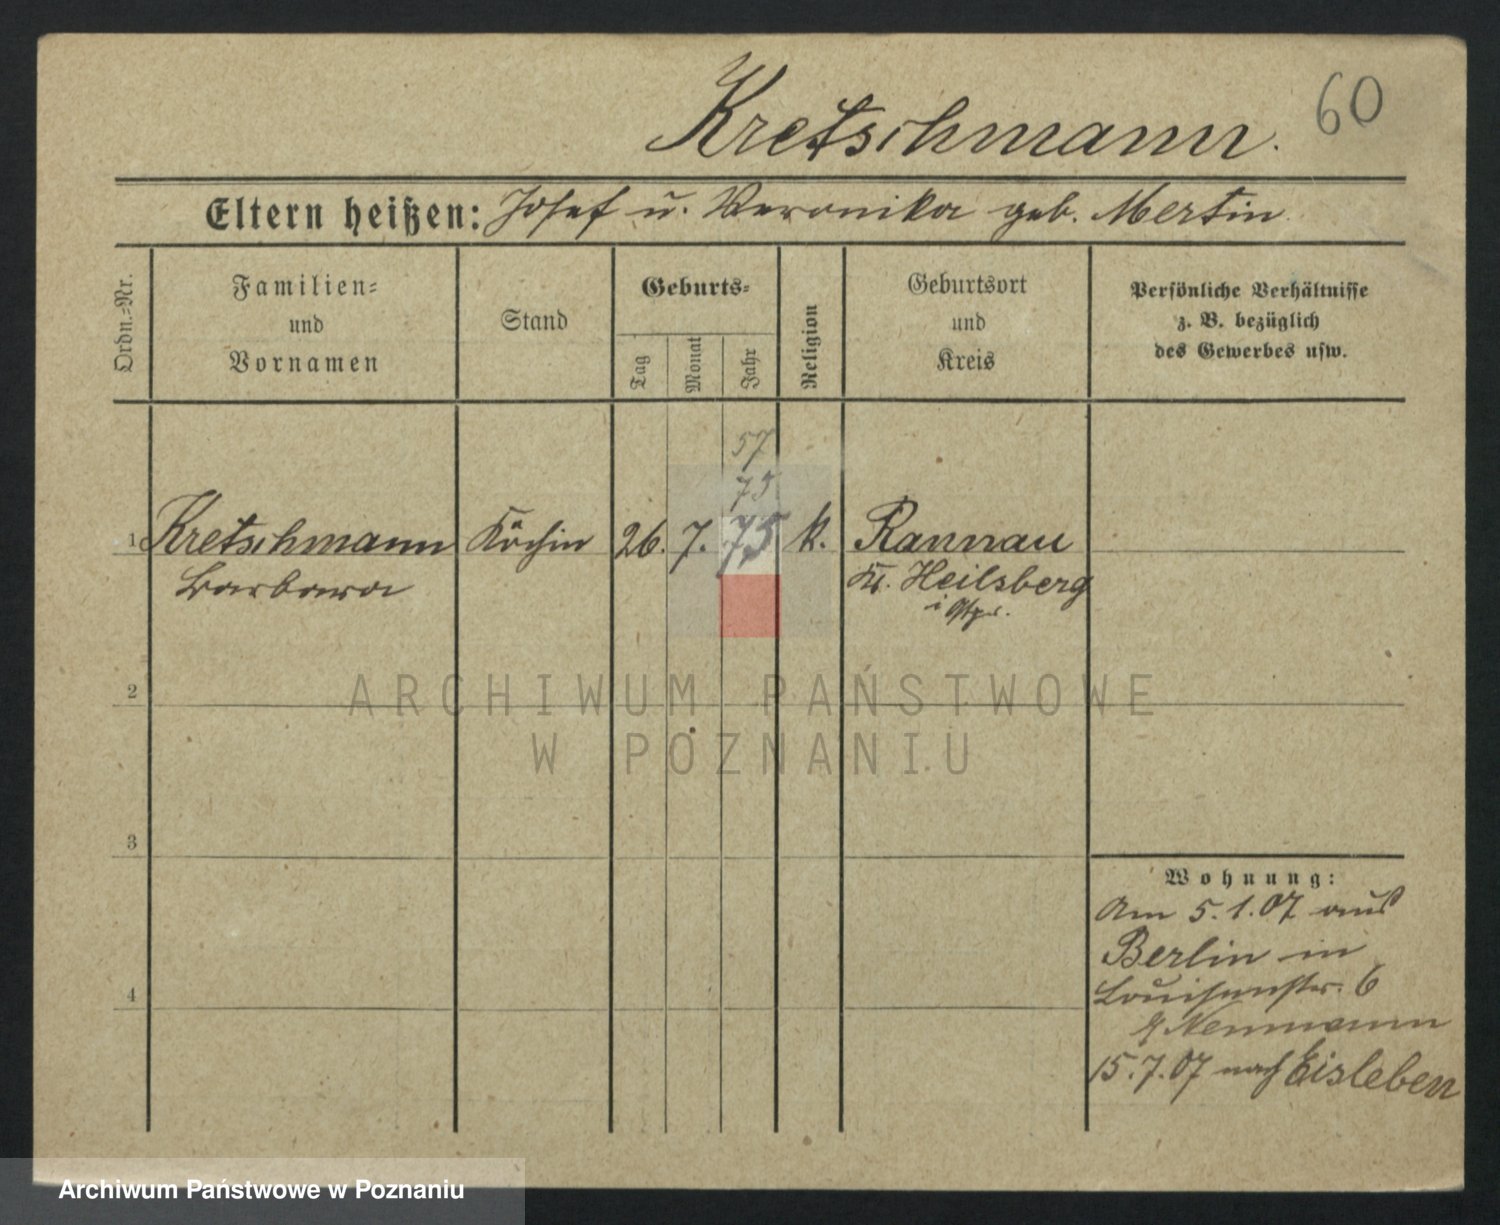 60
Kretschmann.
Eltern heißen: Josef u. Veronika geb. Mertin
Ordn.=Nr.
Familien=
und
Vornamen
Stand
Geburts=
Tag
Monat
Jahr
Religion
Geburtsort
und
Kreis
Persönliche Verhältnisse
z. B. bezüglich
des Gewerbes usw.
57
75
1 Kretschmann Köchin 26. 7. 75 k. Rannau
Barbara Kr. Heilsberg
i Ostpr.
2
3
4
Wohnung:
Am 5.1.07 aus
Berlin in
Louisenstr. 6
Neumann
15.7.07 nach Eisleben
ARCHIWUM PAŃSTWOWE
W POZNANIU
Archiwum Państwowe w Poznaniu